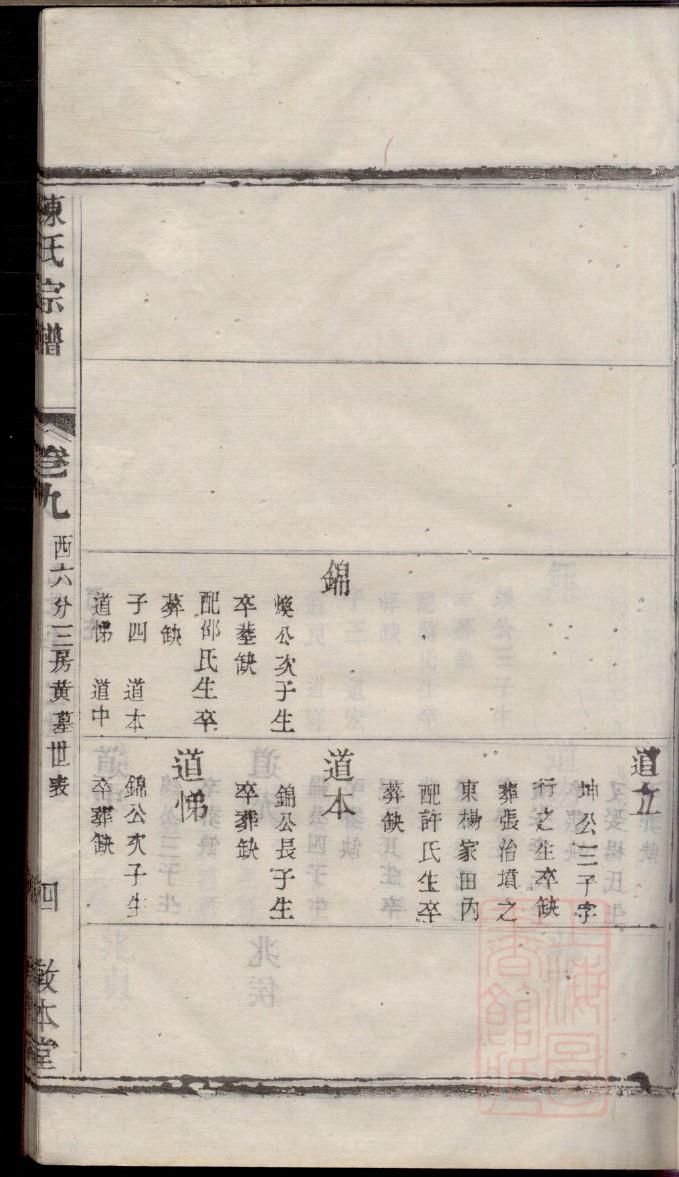 道立
坤公三子字
行之生卒缺
葬張治墳之
東楊家田內
配許氏生卒
葬缺
錦
煥公次子生
卒塟缺
配邵氏生卒
葬缺
子四 道本
道悌 道中
道本
錦公長子生
卒葬缺
道悌
錦公次子生
卒葬缺
陳氏宗譜
卷九
西六分三房黄墓世表
四
敦本堂